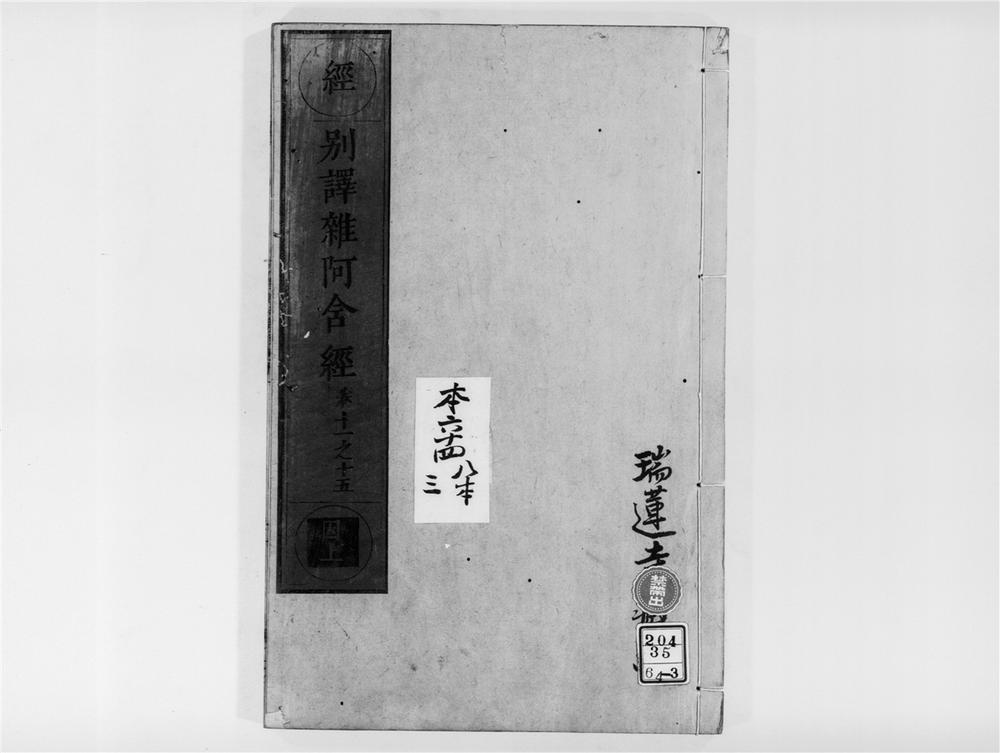 經
別譯雜阿含經 卷十一之十五
本六十四
八本
三
瑞蓮寺
禁帶出
204
35
64-3